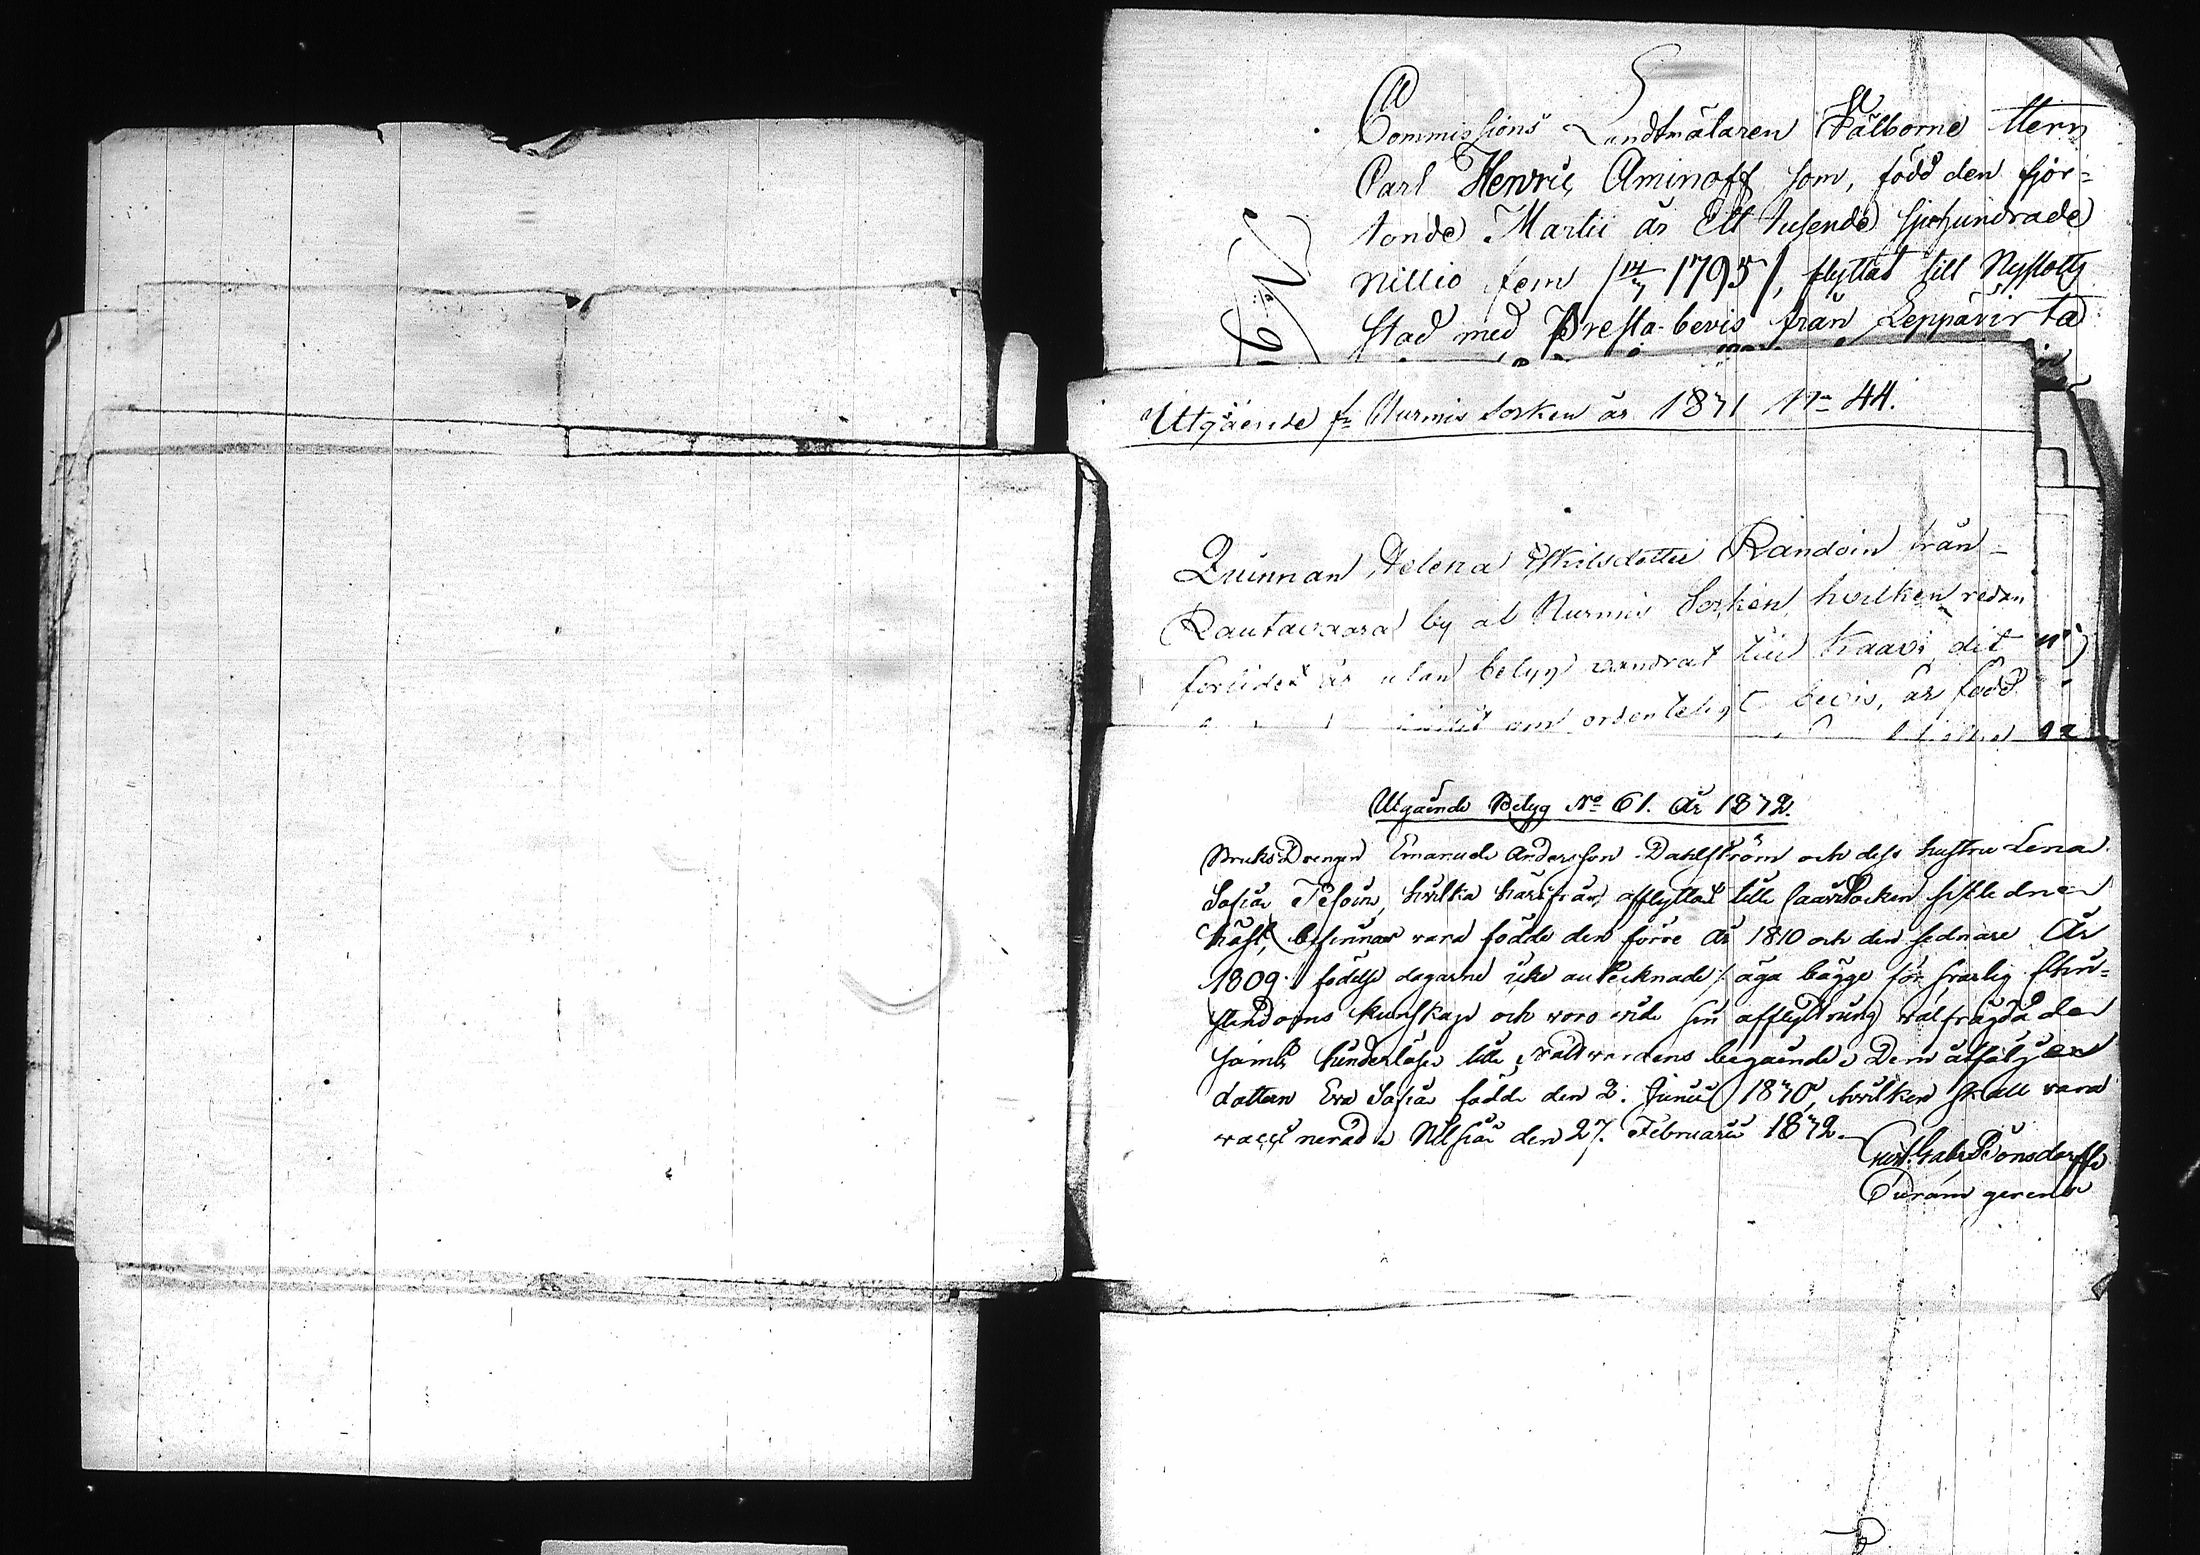 Commissions Landtmätaren Välborne Herr
Carl Henric Aminoff som, född den fjor=
tonde Martii år Ett tusende sjuhundrade
nittio fem /14/ 1795/, flyttat till Nyslotts
stad med Presta-bevis från Leppävirta
Utgående fr Nurmis Socken år 1871 No 44.
Quinnan Helena Eskilsdotter Randoin från
Rautavaara by af Nurmis Socken, hvilken redan
förlidet år utan betyg vandrat till Kaavi, dit
om ordenteligt bevis, är född
Utgående Betyg No 61. År 1872.
BruksDrengen Emanuel Andersson Dahlström och dess hustru Lena
Sofia hvilka härifrån afflyttat till Kaavi Socken sistledne
höst, befinnas vara födde den förre År 1810 och den sednare År
1809. födelse dagarne icke antecknade /. äga bägge försvarlig Chri=
stendoms kunskap och voro vid sin afflyttning välfrägdade
samt hinderlöse till Nattvardens begående. Dem åtföljer
dottern Eva Sofia född den 2. Junii 1870, hvilken skall vara
vaccinerad. Nilsiä den 27. Februarii 1872.
Gabr. Bonsdorff